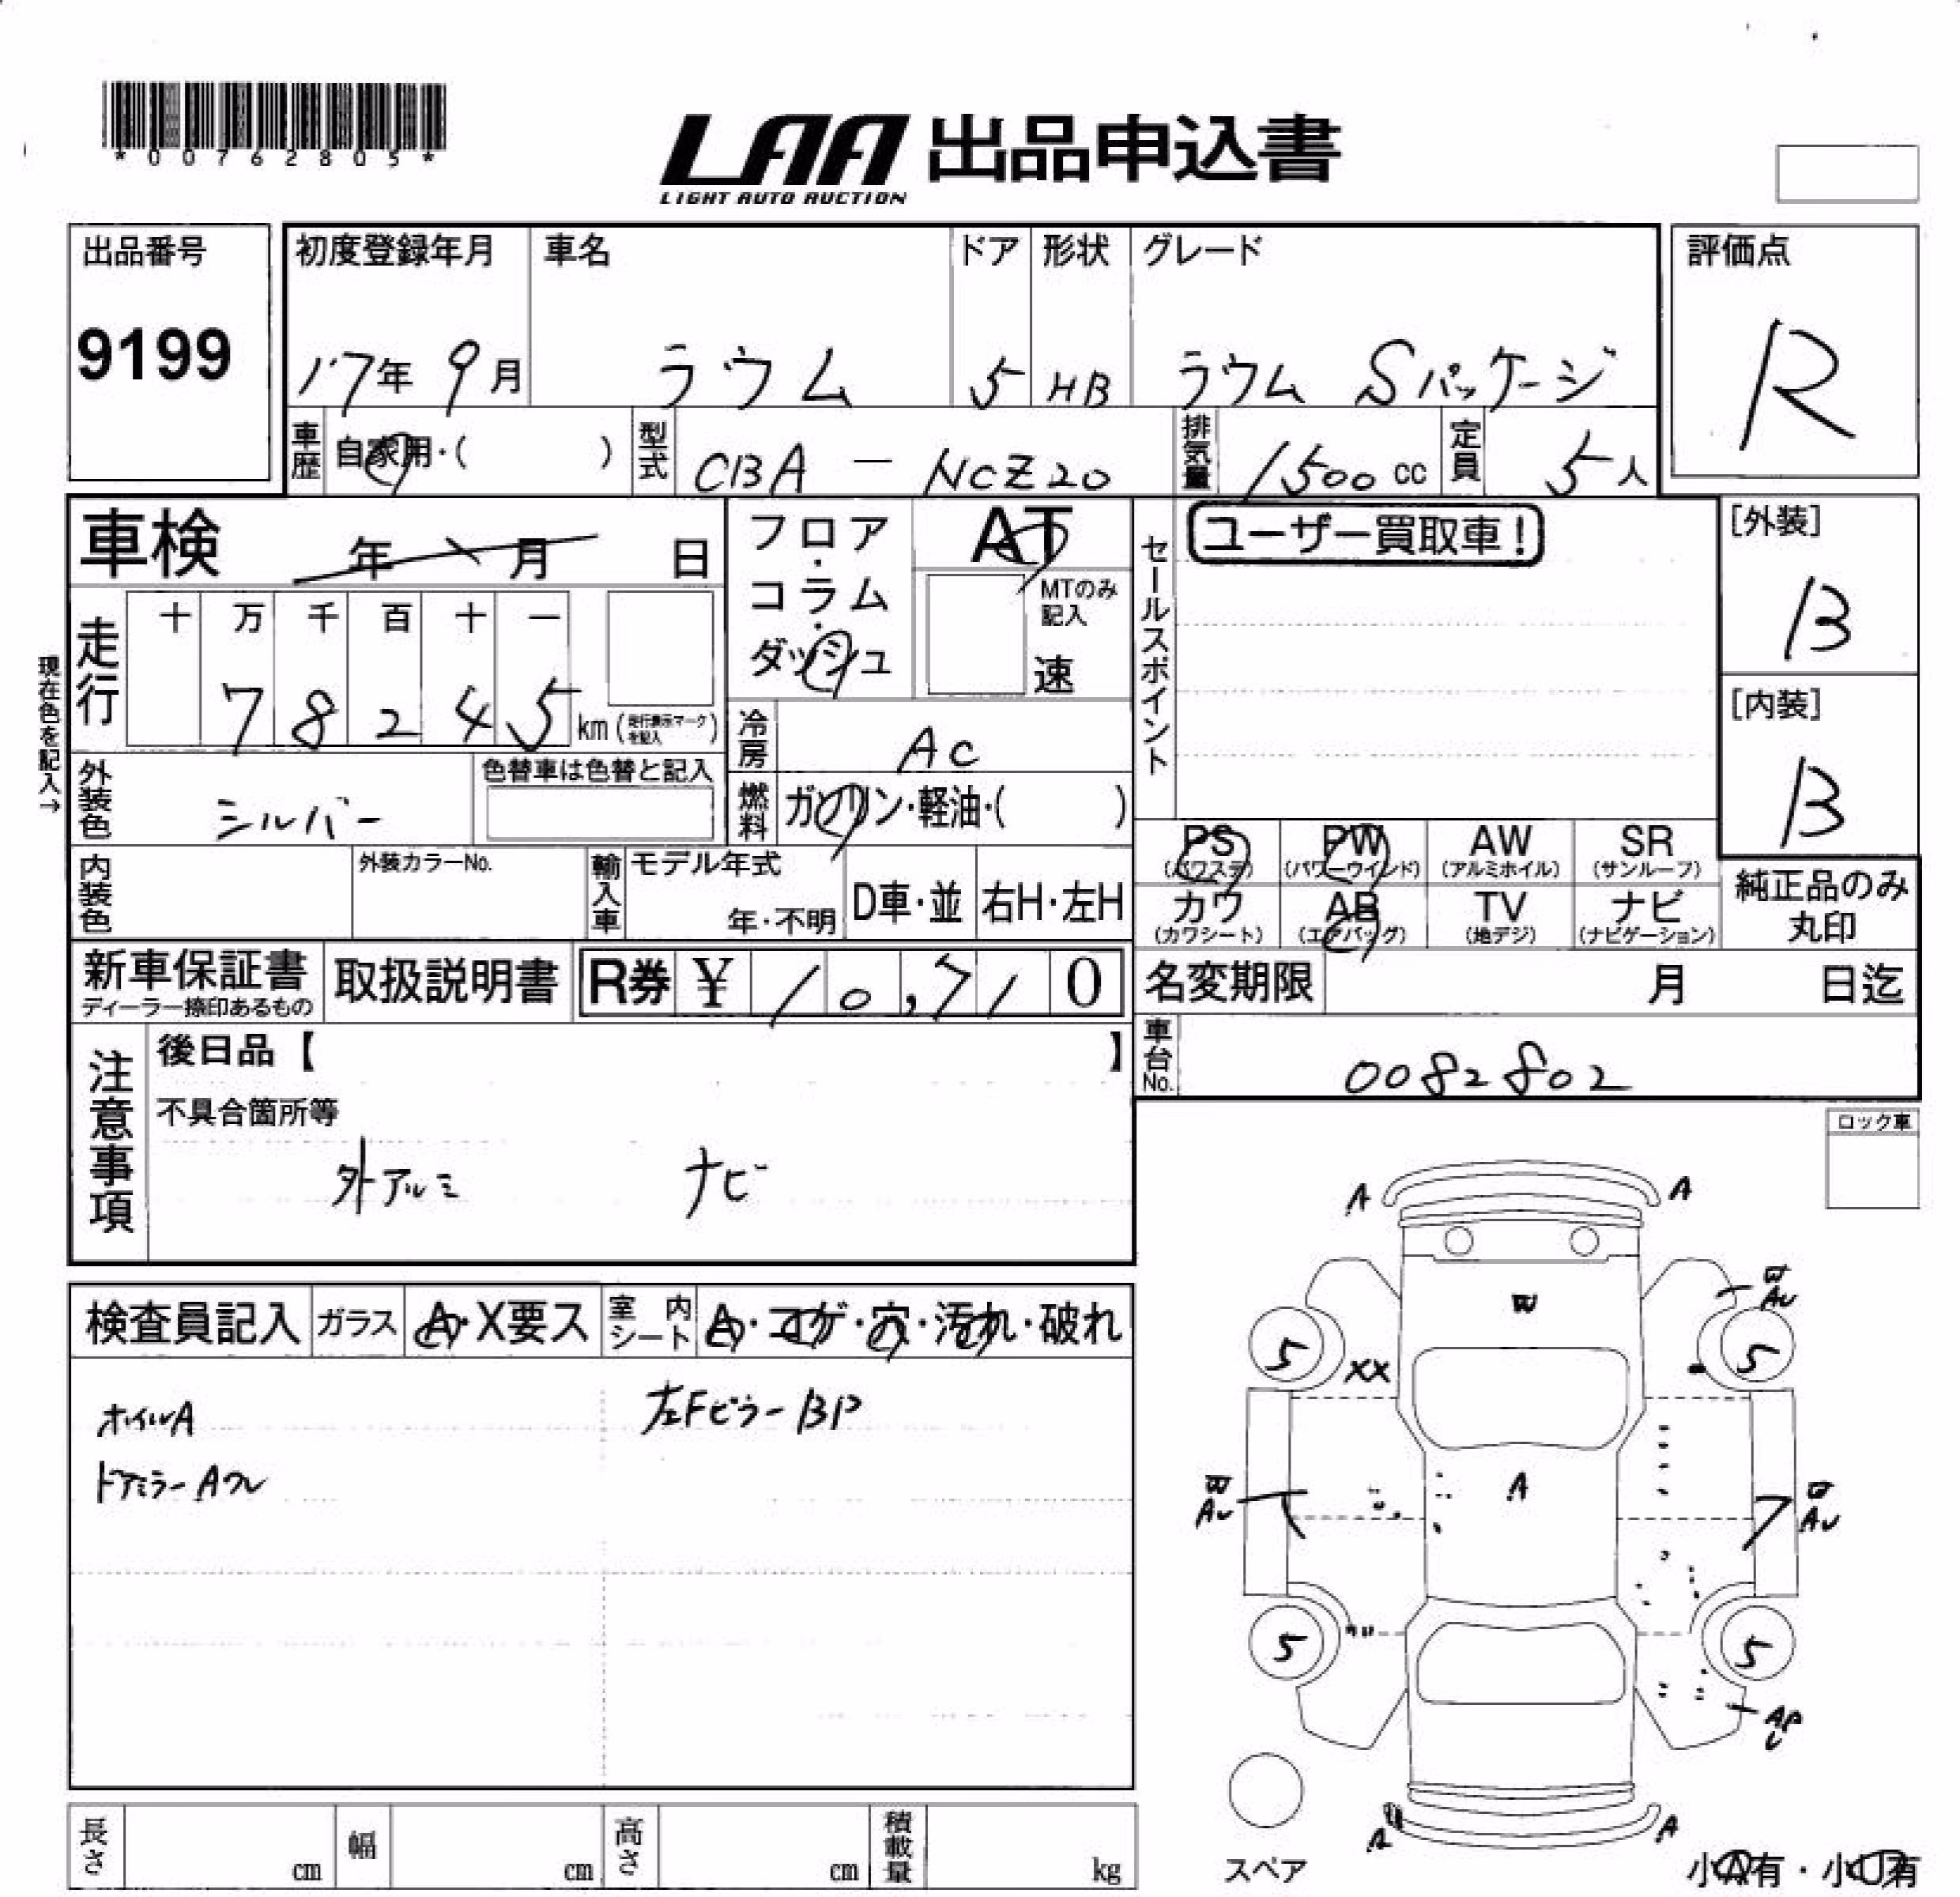 *00762805*
LAA 出品申込書
LIGHT AUTO AUCTION
出品番号
9199
初度登録年月
17年 9月
車名
ラウム
ドア
5
形状
HB
グレード
ラウム Sパッケージ
評価点
R
車歴
自家用・( )
型式
CBA - NCZ20
排気量
1500 cc
定員
5人
車検
年 月 日
現在色を記入→
走行
十 万 千 百 十 一
7 8 2 4 5 km (走行表示マークを記入)
フロア・コラム・ダッシュ
AT
MTのみ記入
速
冷房
AC
燃料
ガソリン・軽油・( )
外装色
シルバー
色替車は色替と記入
内装色
外装カラーNo.
輸入車
モデル年式
年・不明
D車・並
右H・左H
セールスポイント
ユーザー買取車!
[外装]
B
[内装]
B
PS
(パワステ)
PW
(パワーウインド)
AW
(アルミホイル)
SR
(サンルーフ)
カワ
(カワシート)
AB
(エアバッグ)
TV
(地デジ)
ナビ
(ナビゲーション)
純正品のみ
丸印
新車保証書
ディーラー捺印あるもの
取扱説明書
R券 ¥ 10,710
名変期限
月 日迄
車台No.
0082802
注意事項
後日品【 】
不具合箇所等
外アルミ ナビ
ロック車
検査員記入
ガラス
A・X要ス
室内シート
A・コゲ・穴・汚れ・破れ
ホイルA
ドアミラーAワレ
左FピラーBP
A
A
W
XX
5
5
A
5
5
A
A
AP
スペア
小A有・小U有
長さ
cm
幅
cm
高さ
cm
積載量
kg